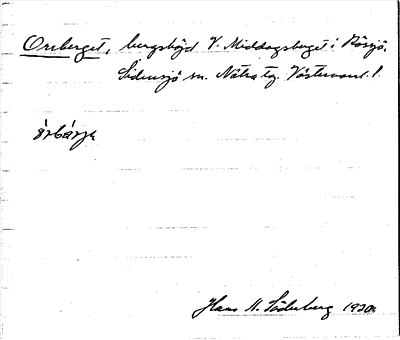 Orrberget, bergshöjd V. Middagsberget i Rösjö.
Sidensjö sn. Nätra tg. Västernorrl. l.
Hans N. Söderberg 1920